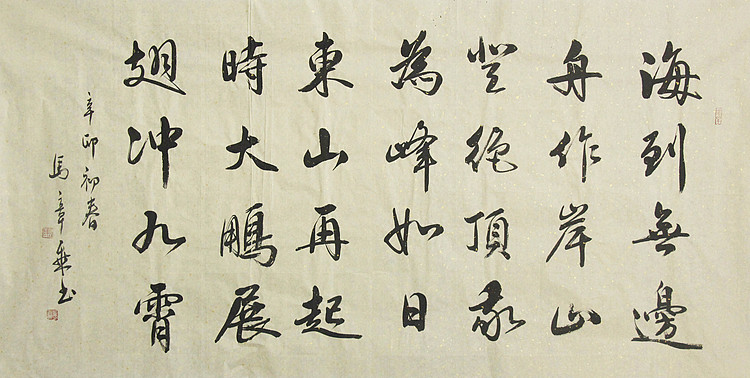 海到無邊
舟作岸山
登絶頂我
為峰如日
東山再起
時大鵬展
翅冲九霄
辛卯初春
馬章乘书